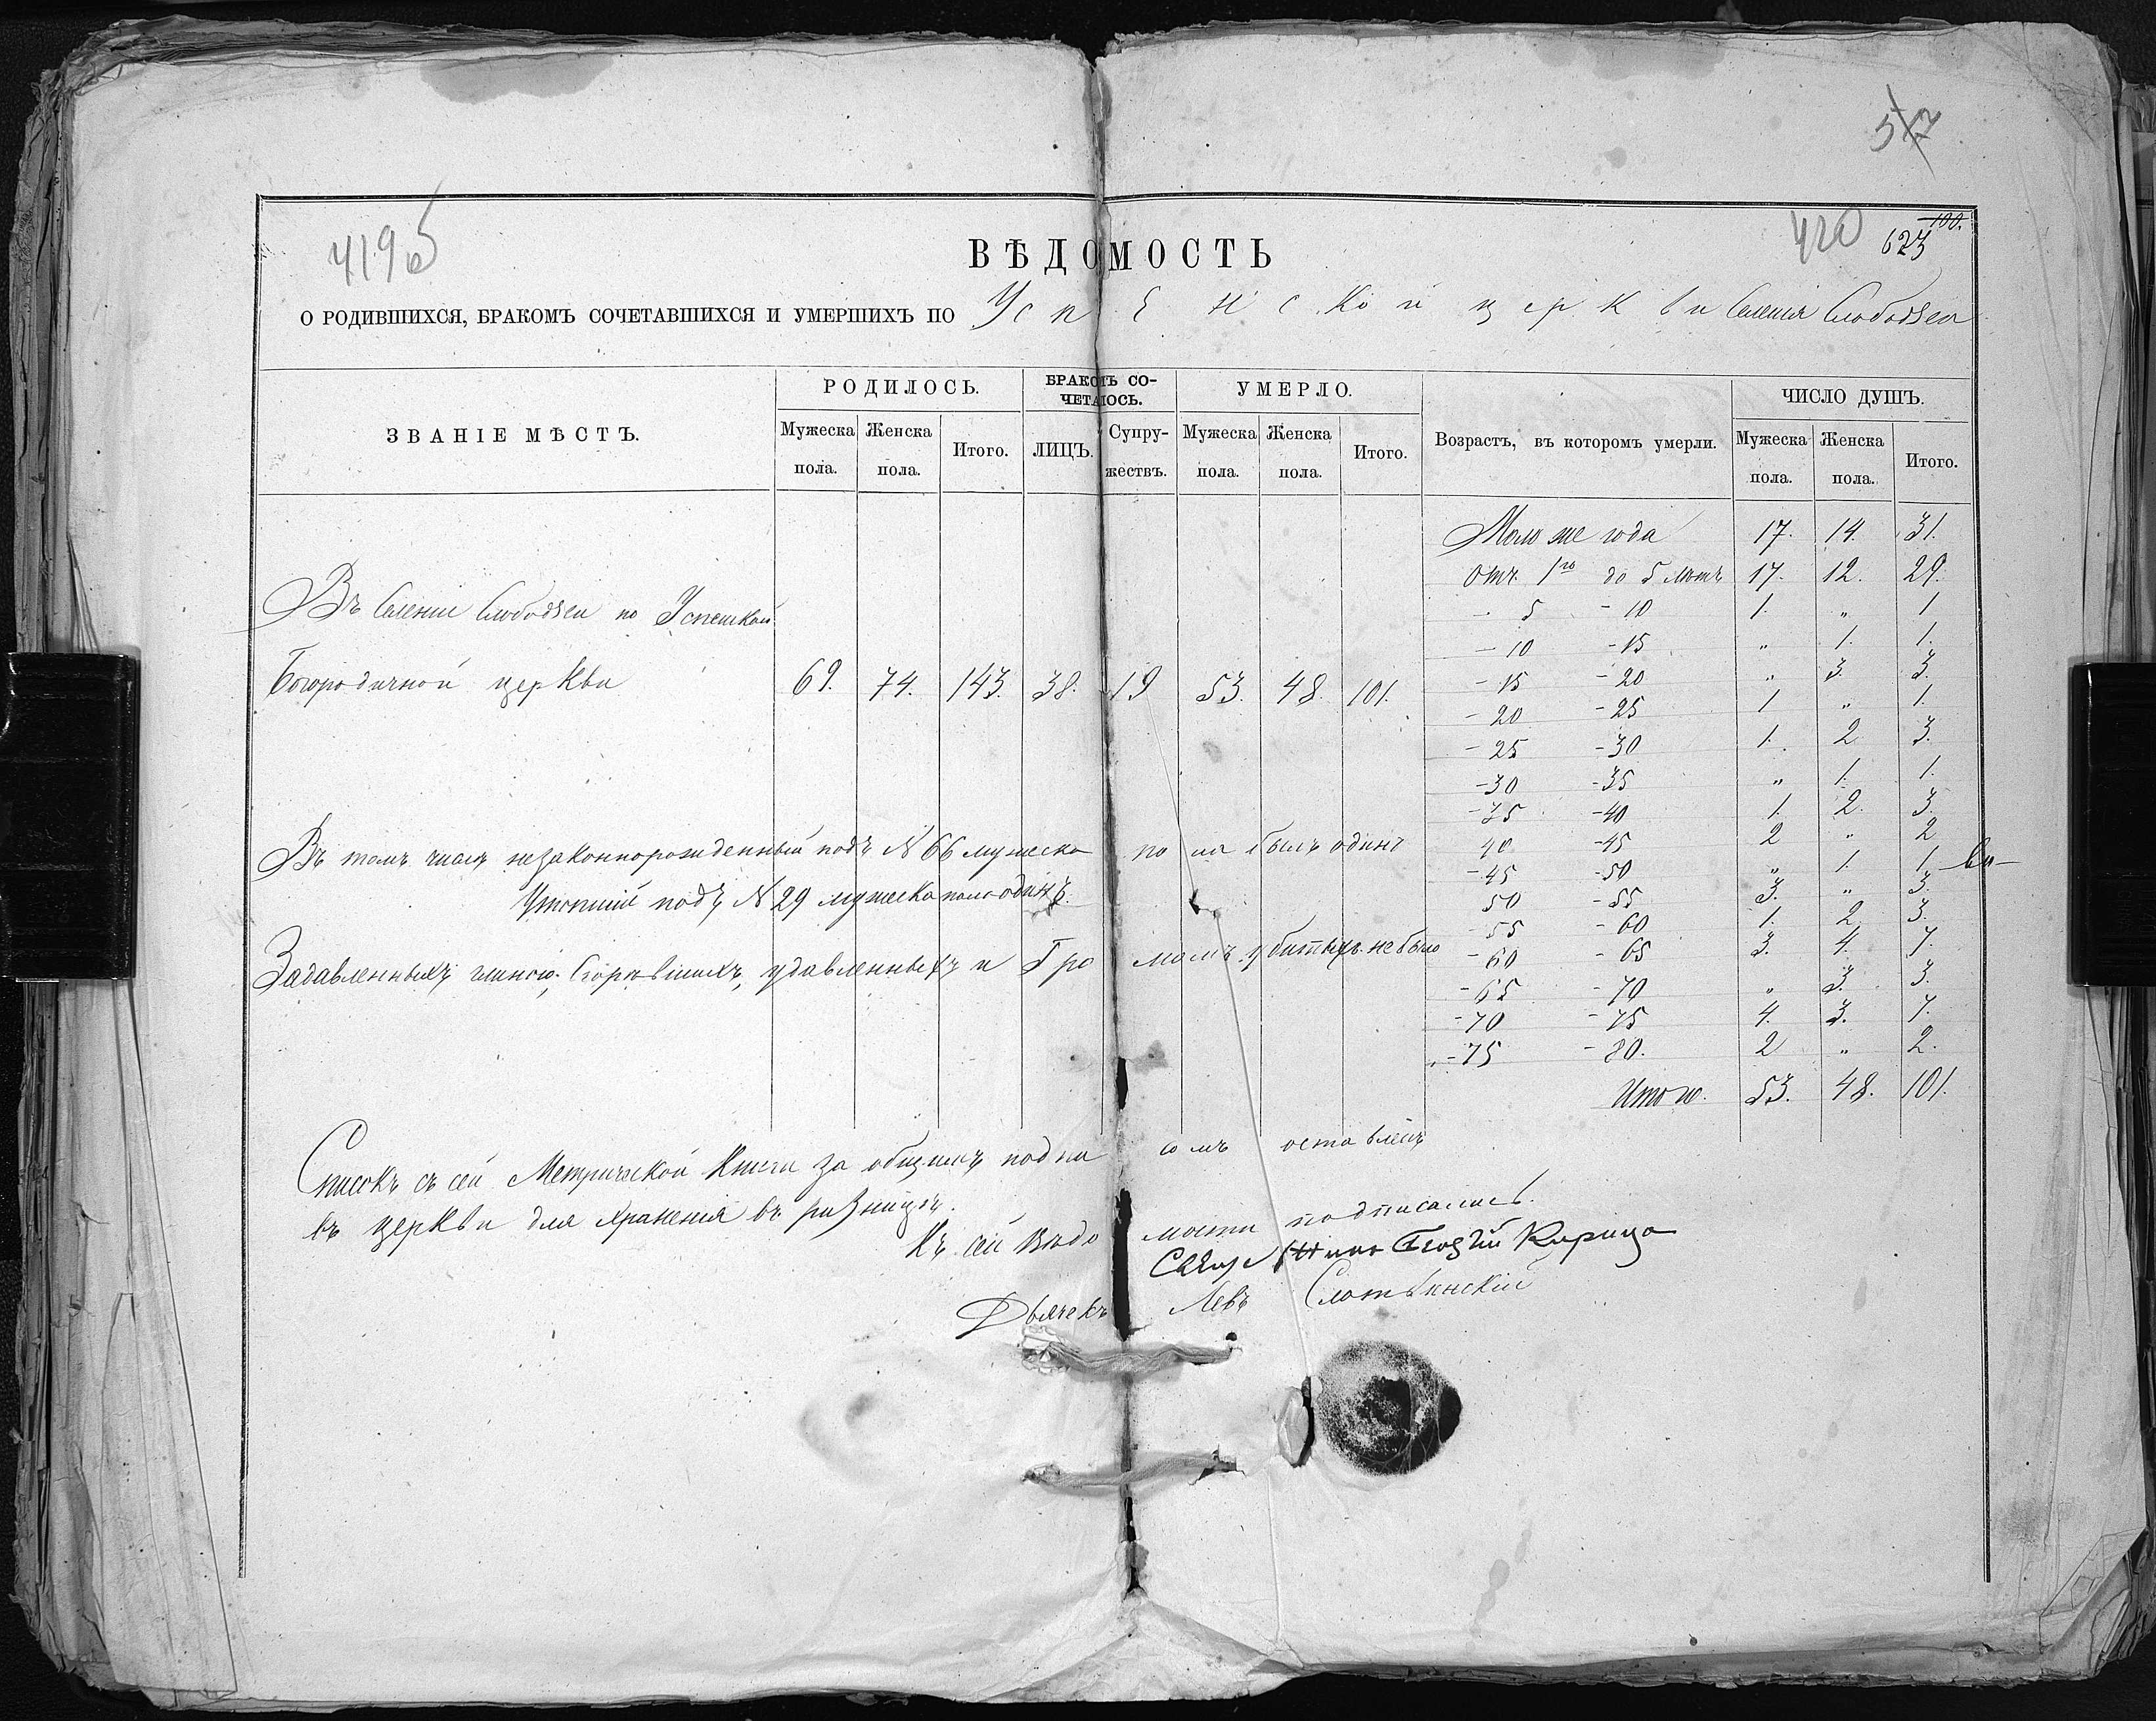 517
419 об
420
100.
623
ВѢДОМОСТЬ
О РОДИВШИХСЯ, БРАКОМЪ СОЧЕТАВШИХСЯ И УМЕРШИХЪ ПО Успенской церкви Селенія Слободзеи
ЗВАНІЕ МѢСТЪ. РОДИЛОСЬ. БРАКОМЪ СОЧЕТАЛОСЬ. УМЕРЛО. Возрастъ, въ которомъ умерли. ЧИСЛО ДУШЪ.
Мужеска пола. Женска пола. Итого. ЛИЦЪ. Супружествъ. Мужеска пола. Женска пола. Итого. Мужеска пола. Женска пола. Итого.
Въ Селеніи Слободзеи по Успенской
Богородичной церкви 69. 74. 143. 38. 19 53. 48. 101.
Моложе года 17. 14. 31.
Отъ 1го до 5 лѣтъ 17. 12. 29.
- 5 - 10 1. „ 1
- 10 - 15 „ 1. 1.
- 15 - 20 „ 3. 3.
- 20 - 25 1 „ 1.
- 25 - 30 1. 2 3.
- 30 - 35 „ 1. 1.
- 35 - 40 1. 2. 3.
40 - 45 2 „ 2
- 45 - 50 „ 1. 1.
50 - 55 3. „ 3.
- 55 - 60 1. 2 3.
- 60 - 65 3. 4. 7.
- 65 - 70 „ 3. 3.
- 70 - 75 4. 3. 7.
- 75 - 80. 2 „ 2.
Итого. 53. 48. 101.
Въ томъ числѣ незаконнорожденный подъ N 66 мужеска пола былъ одинъ
Утопшій подъ N 29 мужеска пола одинъ.
Задавленныхъ, Сгорѣвшихъ, удавленныхъ и Громомъ убитыхъ не было
Списокъ съ сей Метрической Книги за общимъ подписомъ оставленъ
въ церкви для храненія въ ризницѣ.
Къ сей Вѣдомости подписались.
Священникъ Георгій Кирица
Дьячекъ Левъ